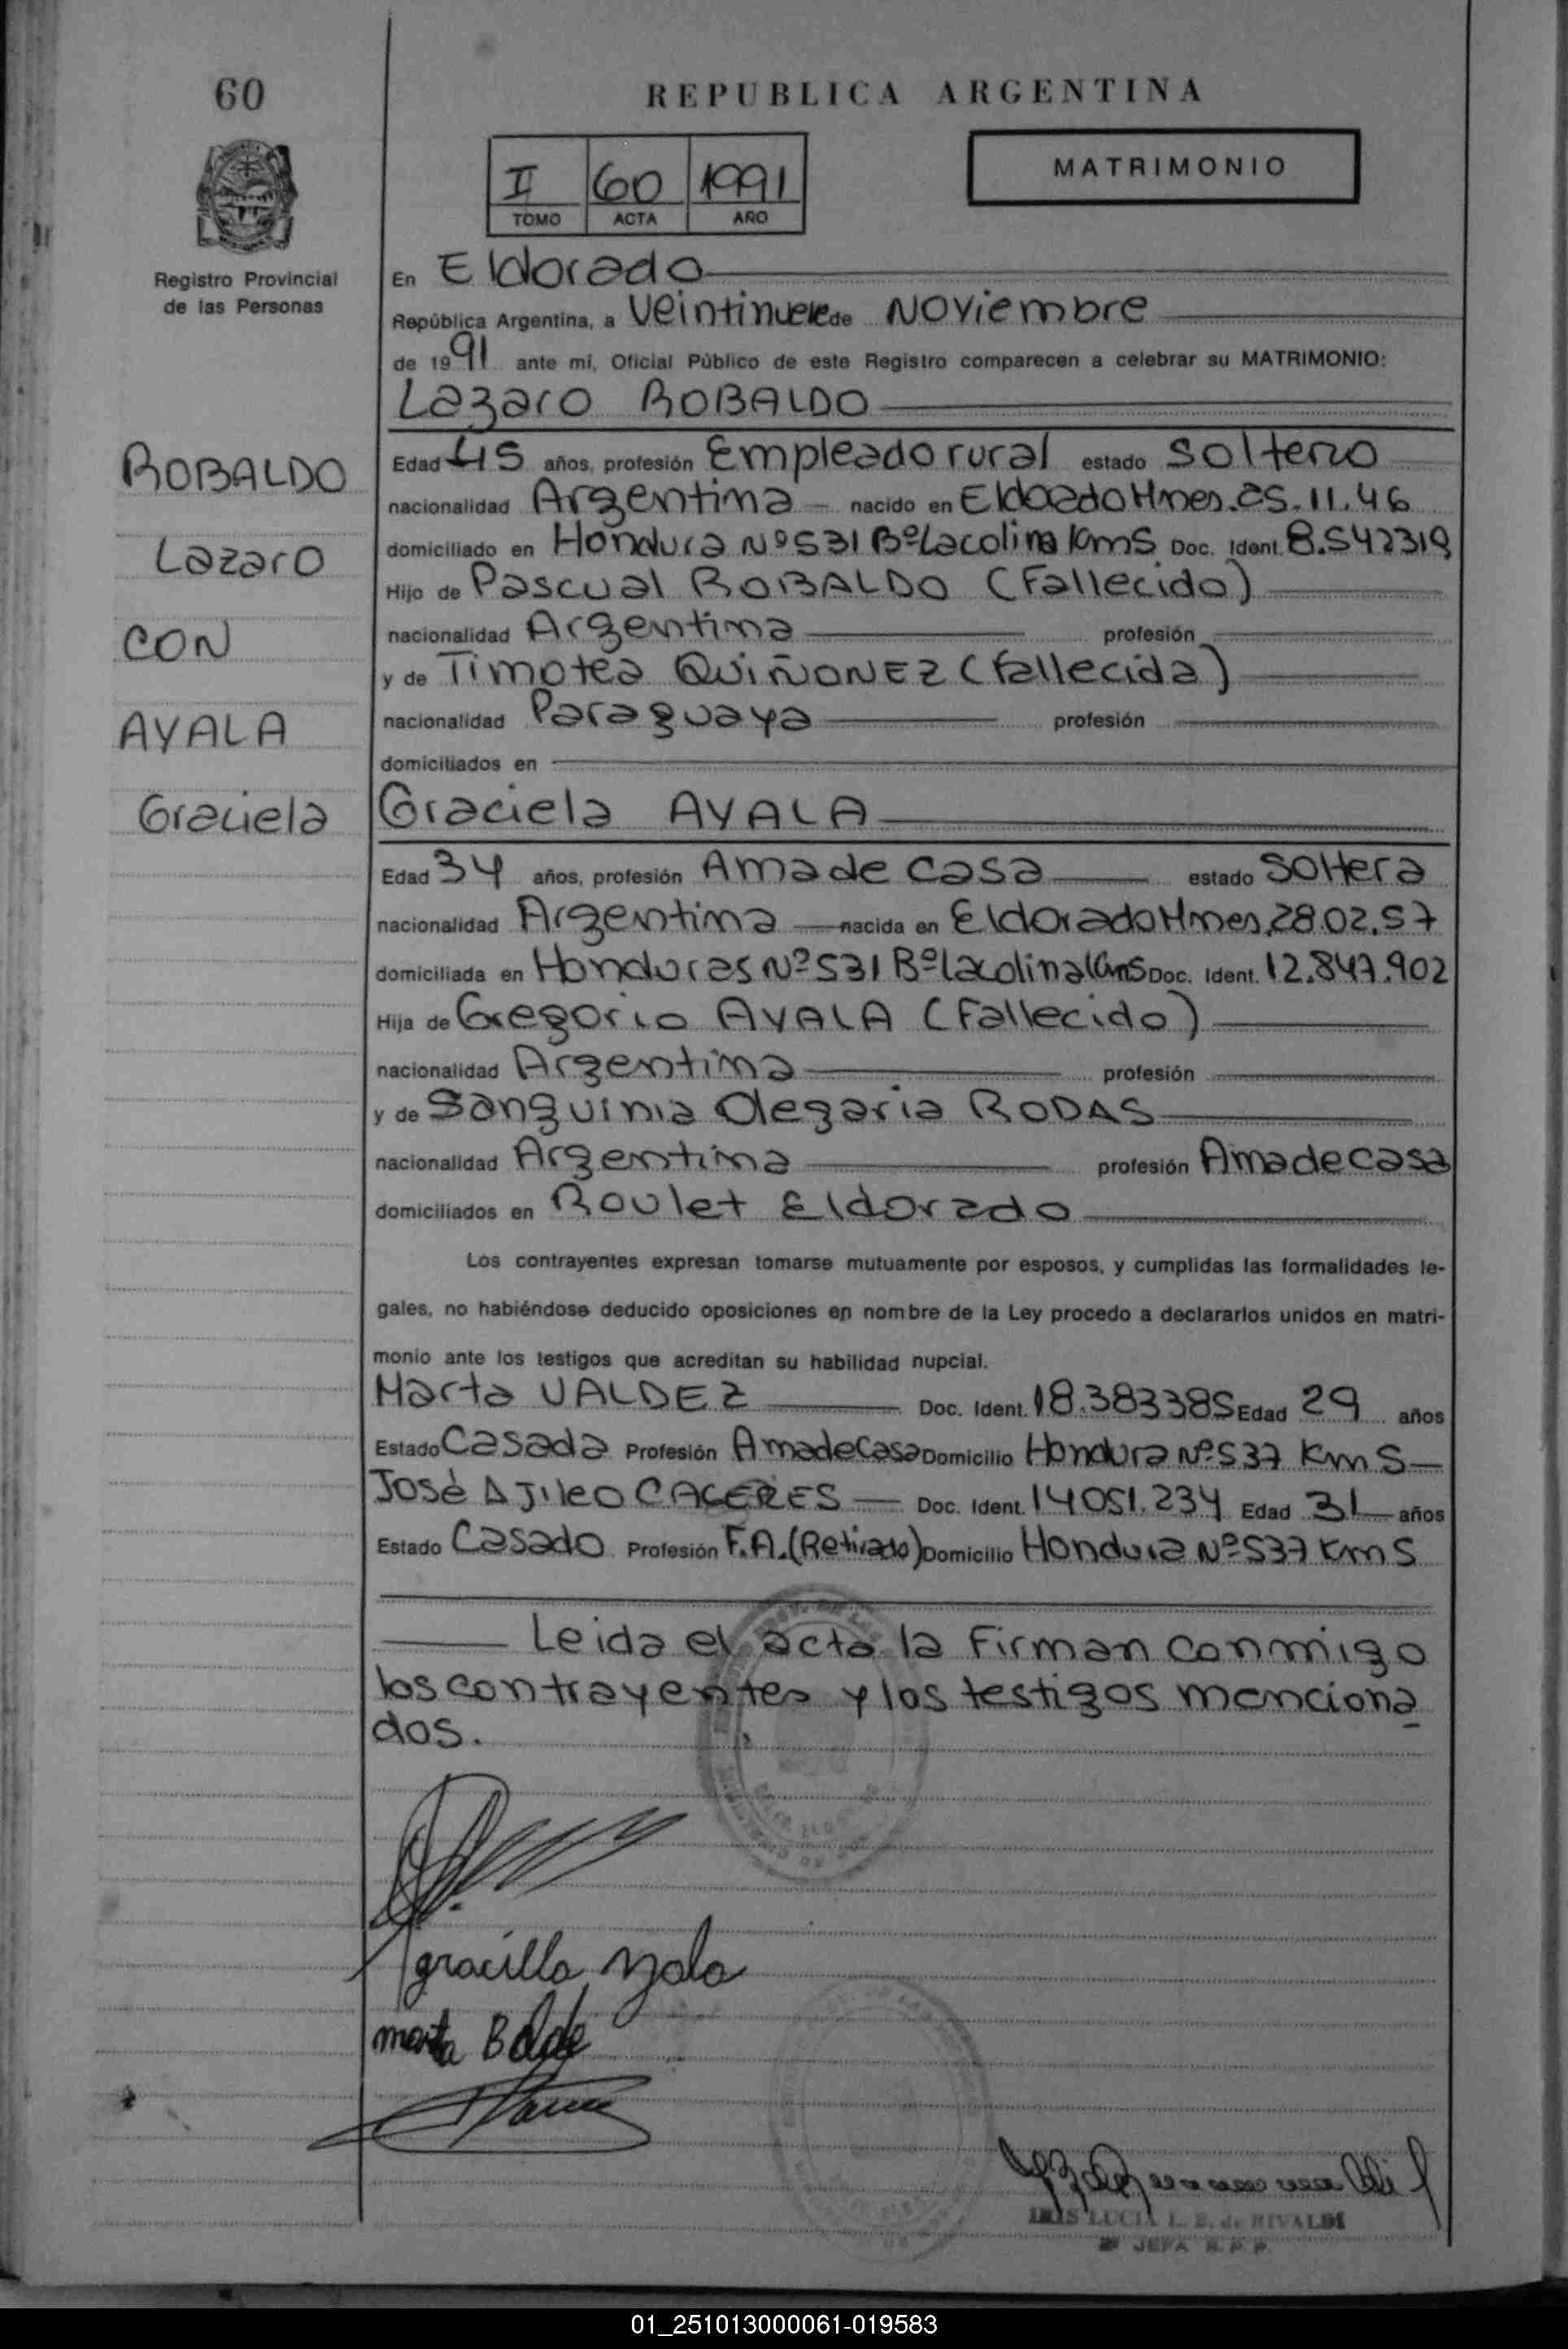 60
REPUBLICA ARGENTINA
II 60 1991
TOMO ACTA AÑO
MATRIMONIO
Registro Provincial
de las Personas
En Eldorado
República Argentina, a Veintinueve de Noviembre
de 1991 ante mi, Oficial Público de este Registro comparecen a celebrar su MATRIMONIO:
Lazaro ROBALDO
ROBALDO
Lazaro
CON
AYALA
Graciela
Edad 45 años, profesión Empleado rural estado Soltero
nacionalidad Argentina nacido en Eldoado Mnes. 25.11.46
domiciliado en Hondura Nº 531 Bº Lacolina Km5 Doc. Ident. 8.542319
Hijo de Pascual ROBALDO (Fallecido)
nacionalidad Argentina profesión
y de Timotea QUIÑONEZ (fallecida)
nacionalidad Paraguaya profesión
domiciliados en
Graciela AYALA
Edad 34 años, profesión Ama de casa estado Soltera
nacionalidad Argentina nacida en Eldorado Mnes, 28.02.57
domiciliada en Honduras Nº 531 Bº Lacolina Km5 Doc. Ident. 12.847.902
Hija de Gregorio AYALA (Fallecido)
nacionalidad Argentina profesión
y de Sanguinia Olegaria RODAS
nacionalidad Argentina profesión Ama de casa
domiciliados en Roulet Eldorado
Los contrayentes expresan tomarse mutuamente por esposos, y cumplidas las formalidades le-
gales, no habiéndose deducido oposiciones en nombre de la Ley procedo a declararlos unidos en matri-
monio ante los testigos que acreditan su habilidad nupcial.
Marta VALDEZ Doc. Ident. 18.383385 Edad 29 años
Estado Casada Profesión Ama de Casa Domicilio Hondura Nº 537 Km 5
José CACERES Doc. Ident. 14051.234 Edad 31 años
Estado Casado Profesión F.A. (Retirado) Domicilio Hondura Nº 537 Km 5
Leida el acta la Firman conmigo
los contrayentes y los testigos menciona
dos.
graciella yala
marta Balde
IRIS LUCIA L. B. de RIVALDI
JEFA R. P. P.
01_251013000061-019583